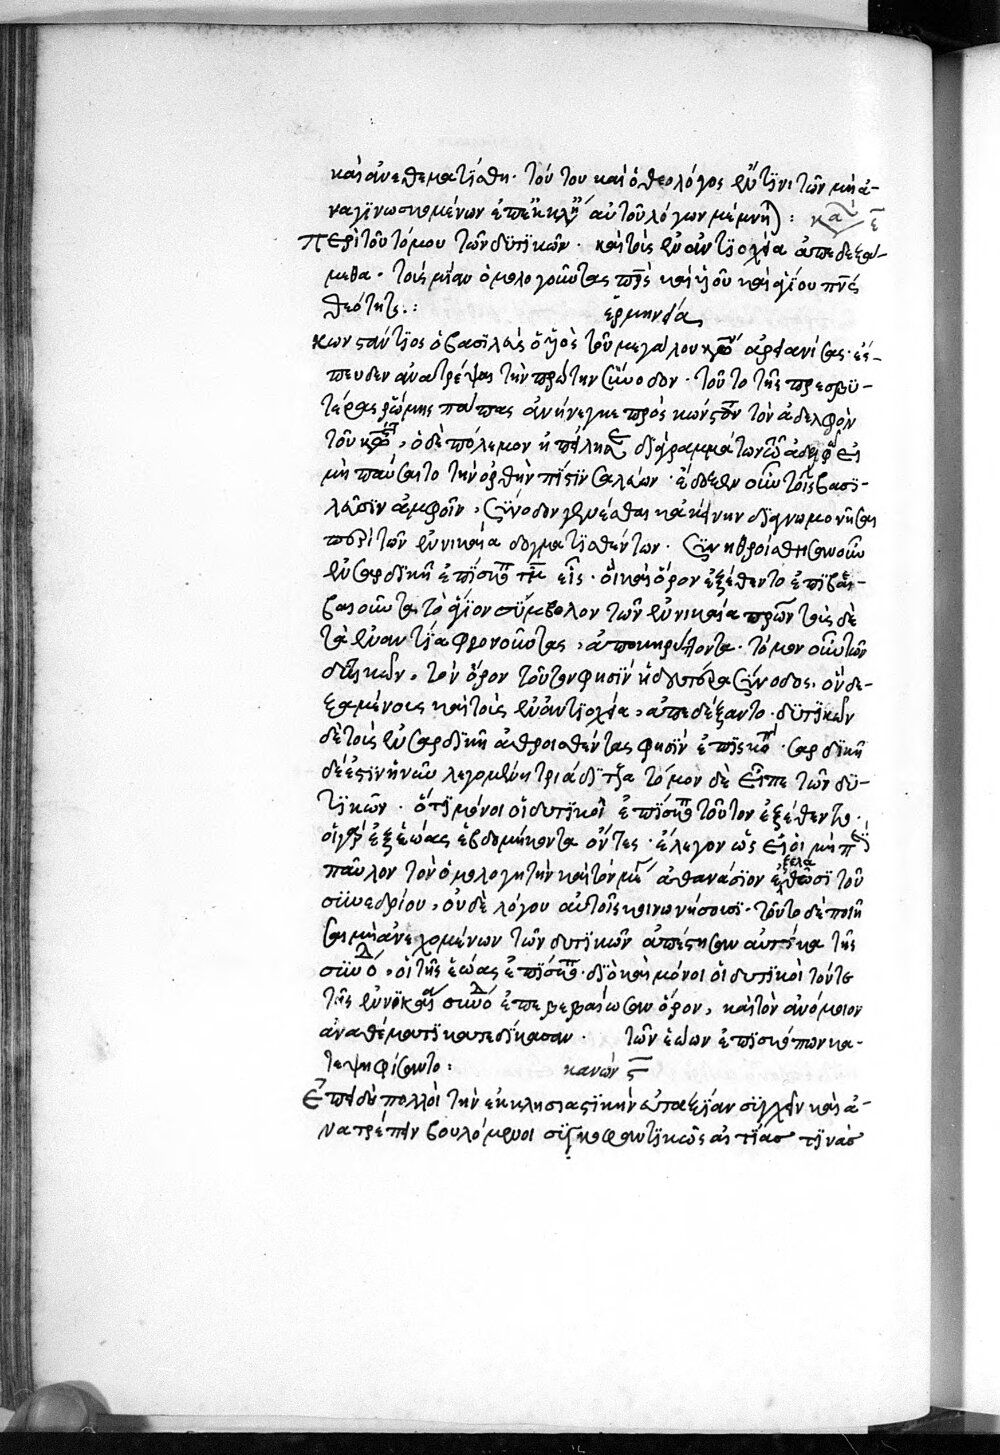 καὶ ἀνεθεματίσθη· τούτου καὶ ὁ θεολόγος ἔν τινι τῶν μὴ ἀ-
ναγινωσκομένων ἐπ' ἐκκλη αὐτοῦ λόγων μέμνη): κα ε
Περὶ τοῦ τόμου τῶν δυτικῶν· καὶ τοὺς ἐν ἀντιοχεία ἀπεδεξά-
μεθα· τοὺς μίαν ὁμολογοῦντας πρς καὶ υἱοῦ καὶ ἁγίου πνς
θεότητα: ἑρμηνεία
Κωνστάντιος ὁ βασιλεὺς ὁ υἱὸς τοῦ μεγάλου κων ἀρειανίσας· ἔσ-
πευδεν ἀνατρέψαι τὴν πρώτην σύνοδον· τοῦτο τῆς πρεσβυ-
τέρας ῥώμης πάπας ἀνήνεγκε πρὸς κώνσταν τὸν ἀδελφὸν
τοῦ κων, ὁ δὲ πόλεμον ἠπείλησε διὰ γραμμάτων τῶ ἀδελφῶ εἰ
μὴ παύσαιτο τὴν ὀρθὴν πίστιν σαλεύων· ἔδοξεν οὖν τοῖς βασι-
λεῦσιν ἀμφοῖν, σύνοδον γενέσθαι κἀκείνην διαγνωμονῆσαι
περὶ τῶν ἐν νικαία δογματισθέντων· συνηθροίσθησαν οὖν
ἐν σαρδικῆ ἐπίσκοποι τμ εἷς· οἳ καὶ ὅρον ἐξέθεντο ἐπιβε-
βαιοῦντα τὸ ἅγιον σύμβολον τῶν ἐν νικαία πρων τοὺς δὲ
τὰ ἐναντία φρονοῦντας, ἀποκηρύττοντα· τόμον οὖν τῶν
δυτικῶν, τὸν ὅρον τοῦτον φησὶν ἡ δευτέρα σύνοδος, ὃν δε-
ξαμένους καὶ τοὺς ἐν ἀντιοχεία, ἀπεδέξαντο· δυτικῶν
δὲ τοὺς ἐν σαρδικῆ ἀθροισθέντας φησὶν ἐπισκό· σαρδικὴ
δέ ἐστιν ἡ νῦν λεγομένη τριάδιτζα τόμον δὲ εἶπε τῶν δυ-
τικῶν· ὅτι μόνοι οἱ δυτικοὶ ἐπίσκοποι τοῦτον ἐξέθεντο·
οἱ γὰρ ἐξ ἑώας ἑβδομήκοντα ὄντες· ἔλεγον ὡς εἰ οἱ μὴ π
παῦλον τὸν ὁμολογητὴν καὶ τὸν μέ ἀθανάσιον ἐξελαθῶσι τοῦ
συνεδρίου, οὐδὲ λόγου αὐτοῖς κοινωνήσουσι· τοῦτο δὲ ποιῆ
σαι μὴ ἀνεχομένων τῶν δυτικῶν ἀπέστησαν αὐτίκα τῆς
συνόδ, οἱ τῆς ἑώας ἐπίσκοποι· διὸ καὶ μόνοι οἱ δυτικοὶ τόντε
τῆς ἐν νικαία συνόδ ἐπεβεβαίωσαν ὅρον, καὶ τὸν ἀνόμοιον
ἀναθέματι κατεδίκασαν· τῶν ἑώων ἐπισκόπων κα-
τεψηφίσαντο: κανών ς
Ἐπειδὴ πολλοὶ τὴν ἐκκλησιαστικὴν εὐταξίαν συγχεῖν καὶ ἀ-
νατρέπειν βουλόμενοι συκοφαντικῶς αἰτίας τινὰς